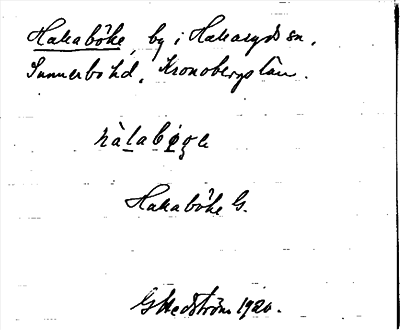 Hallaböke, by i Hallaryds sn,
Sunnerbo hd, Kronobergs län.
hàlabǿgə
Hallaböke G.
G Hedström 1920.